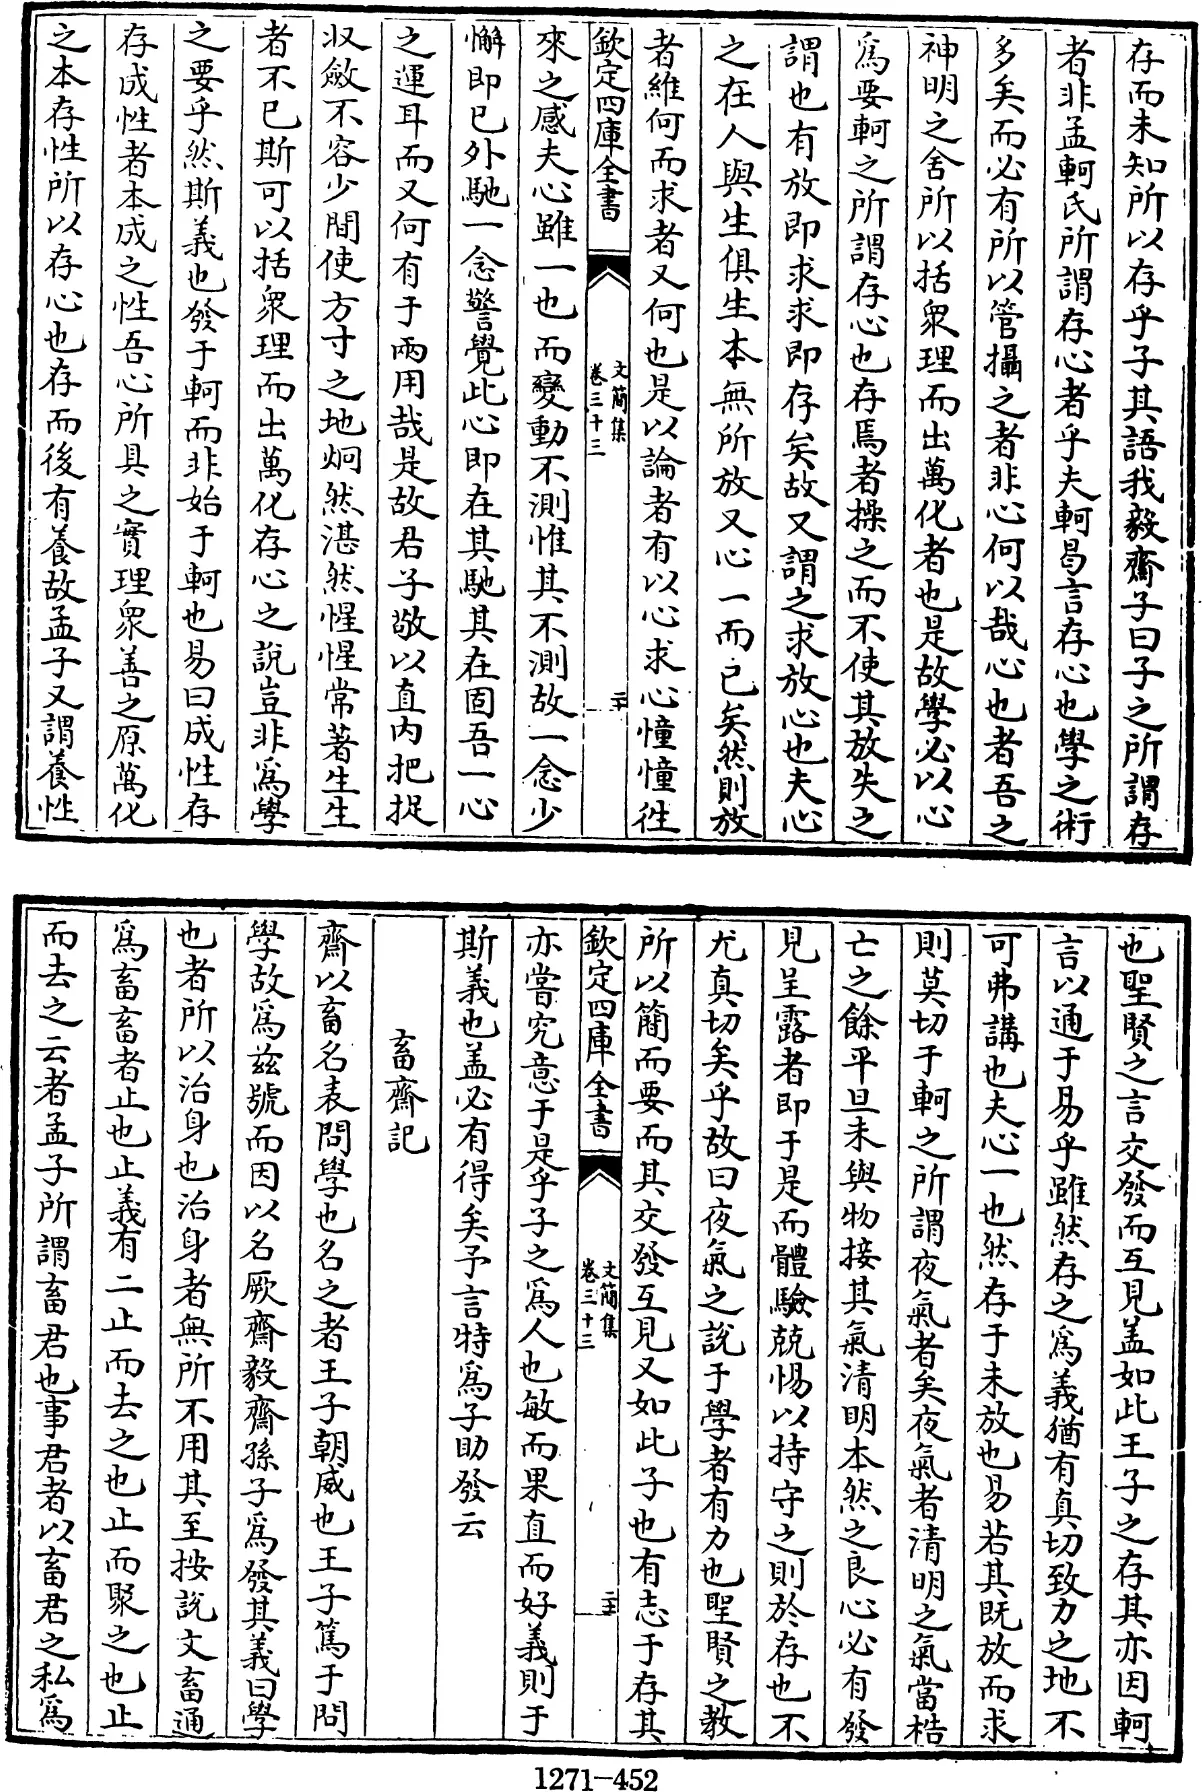 存而未知所以存乎子其語我毅齋子曰子之所謂存
者非孟軻氏所謂存心者乎夫軻曷言存心也學之術
多矣而必有所以管攝之者非心何以哉心也者吾之
神明之舍所以括衆理而出萬化者也是故學必以心
爲要軻之所謂存心也存焉者操之而不使其放失之
謂也有放即求求即存矣故又謂之求放心也夫心
之在人與生俱生本無所放又心一而已矣然則放
者維何而求者又何也是以論者有以心求心憧憧徃
欽定四庫全書
文簡集
卷三十三
二十
來之感夫心雖一也而變動不測惟其不測故一念少
懈即已外馳一念警覺此心即在其馳其在固吾一心
之運耳而又何有于兩用哉是故君子敬以直内把捉
収斂不容少間使方寸之地炯然湛然惺惺常著生生
者不已斯可以括衆理而出萬化存心之說豈非爲學
之要乎然斯義也發于軻而非始于軻也易曰成性存
存成性者本成之性吾心所具之實理衆善之原萬化
之本存性所以存心也存而後有養故孟子又謂養性
也聖賢之言交發而互見盖如此王子之存其亦因軻
言以通于易乎雖然存之爲義猶有真切致力之地不
可弗講也夫心一也然存于未放也易若其既放而求
則莫切于軻之所謂夜氣者矣夜氣者清明之氣當梏
亡之餘平旦未與物接其氣清明本然之良心必有發
見呈露者即于是而體驗兢惕以持守之則於存也不
尤真切矣乎故曰夜氣之說于學者有力也聖賢之教
所以簡而要而其交發互見又如此子也有志于存其
欽定四庫全書
文簡集
卷三十三
亦嘗究意于是乎子之爲人也敏而果直而好義則于
斯義也盖必有得矣予言特爲子助發云
畜齋記
齋以畜名表問學也名之者王子朝威也王子篤于問
學故爲兹號而因以名厥齋毅齋孫子爲發其義曰學
也者所以治身也治身者無所不用其至按說文畜通
爲畜畜者止也止義有二止而去之也止而聚之也止
而去之云者孟子所謂畜君也事君者以畜君之私爲
1271—452